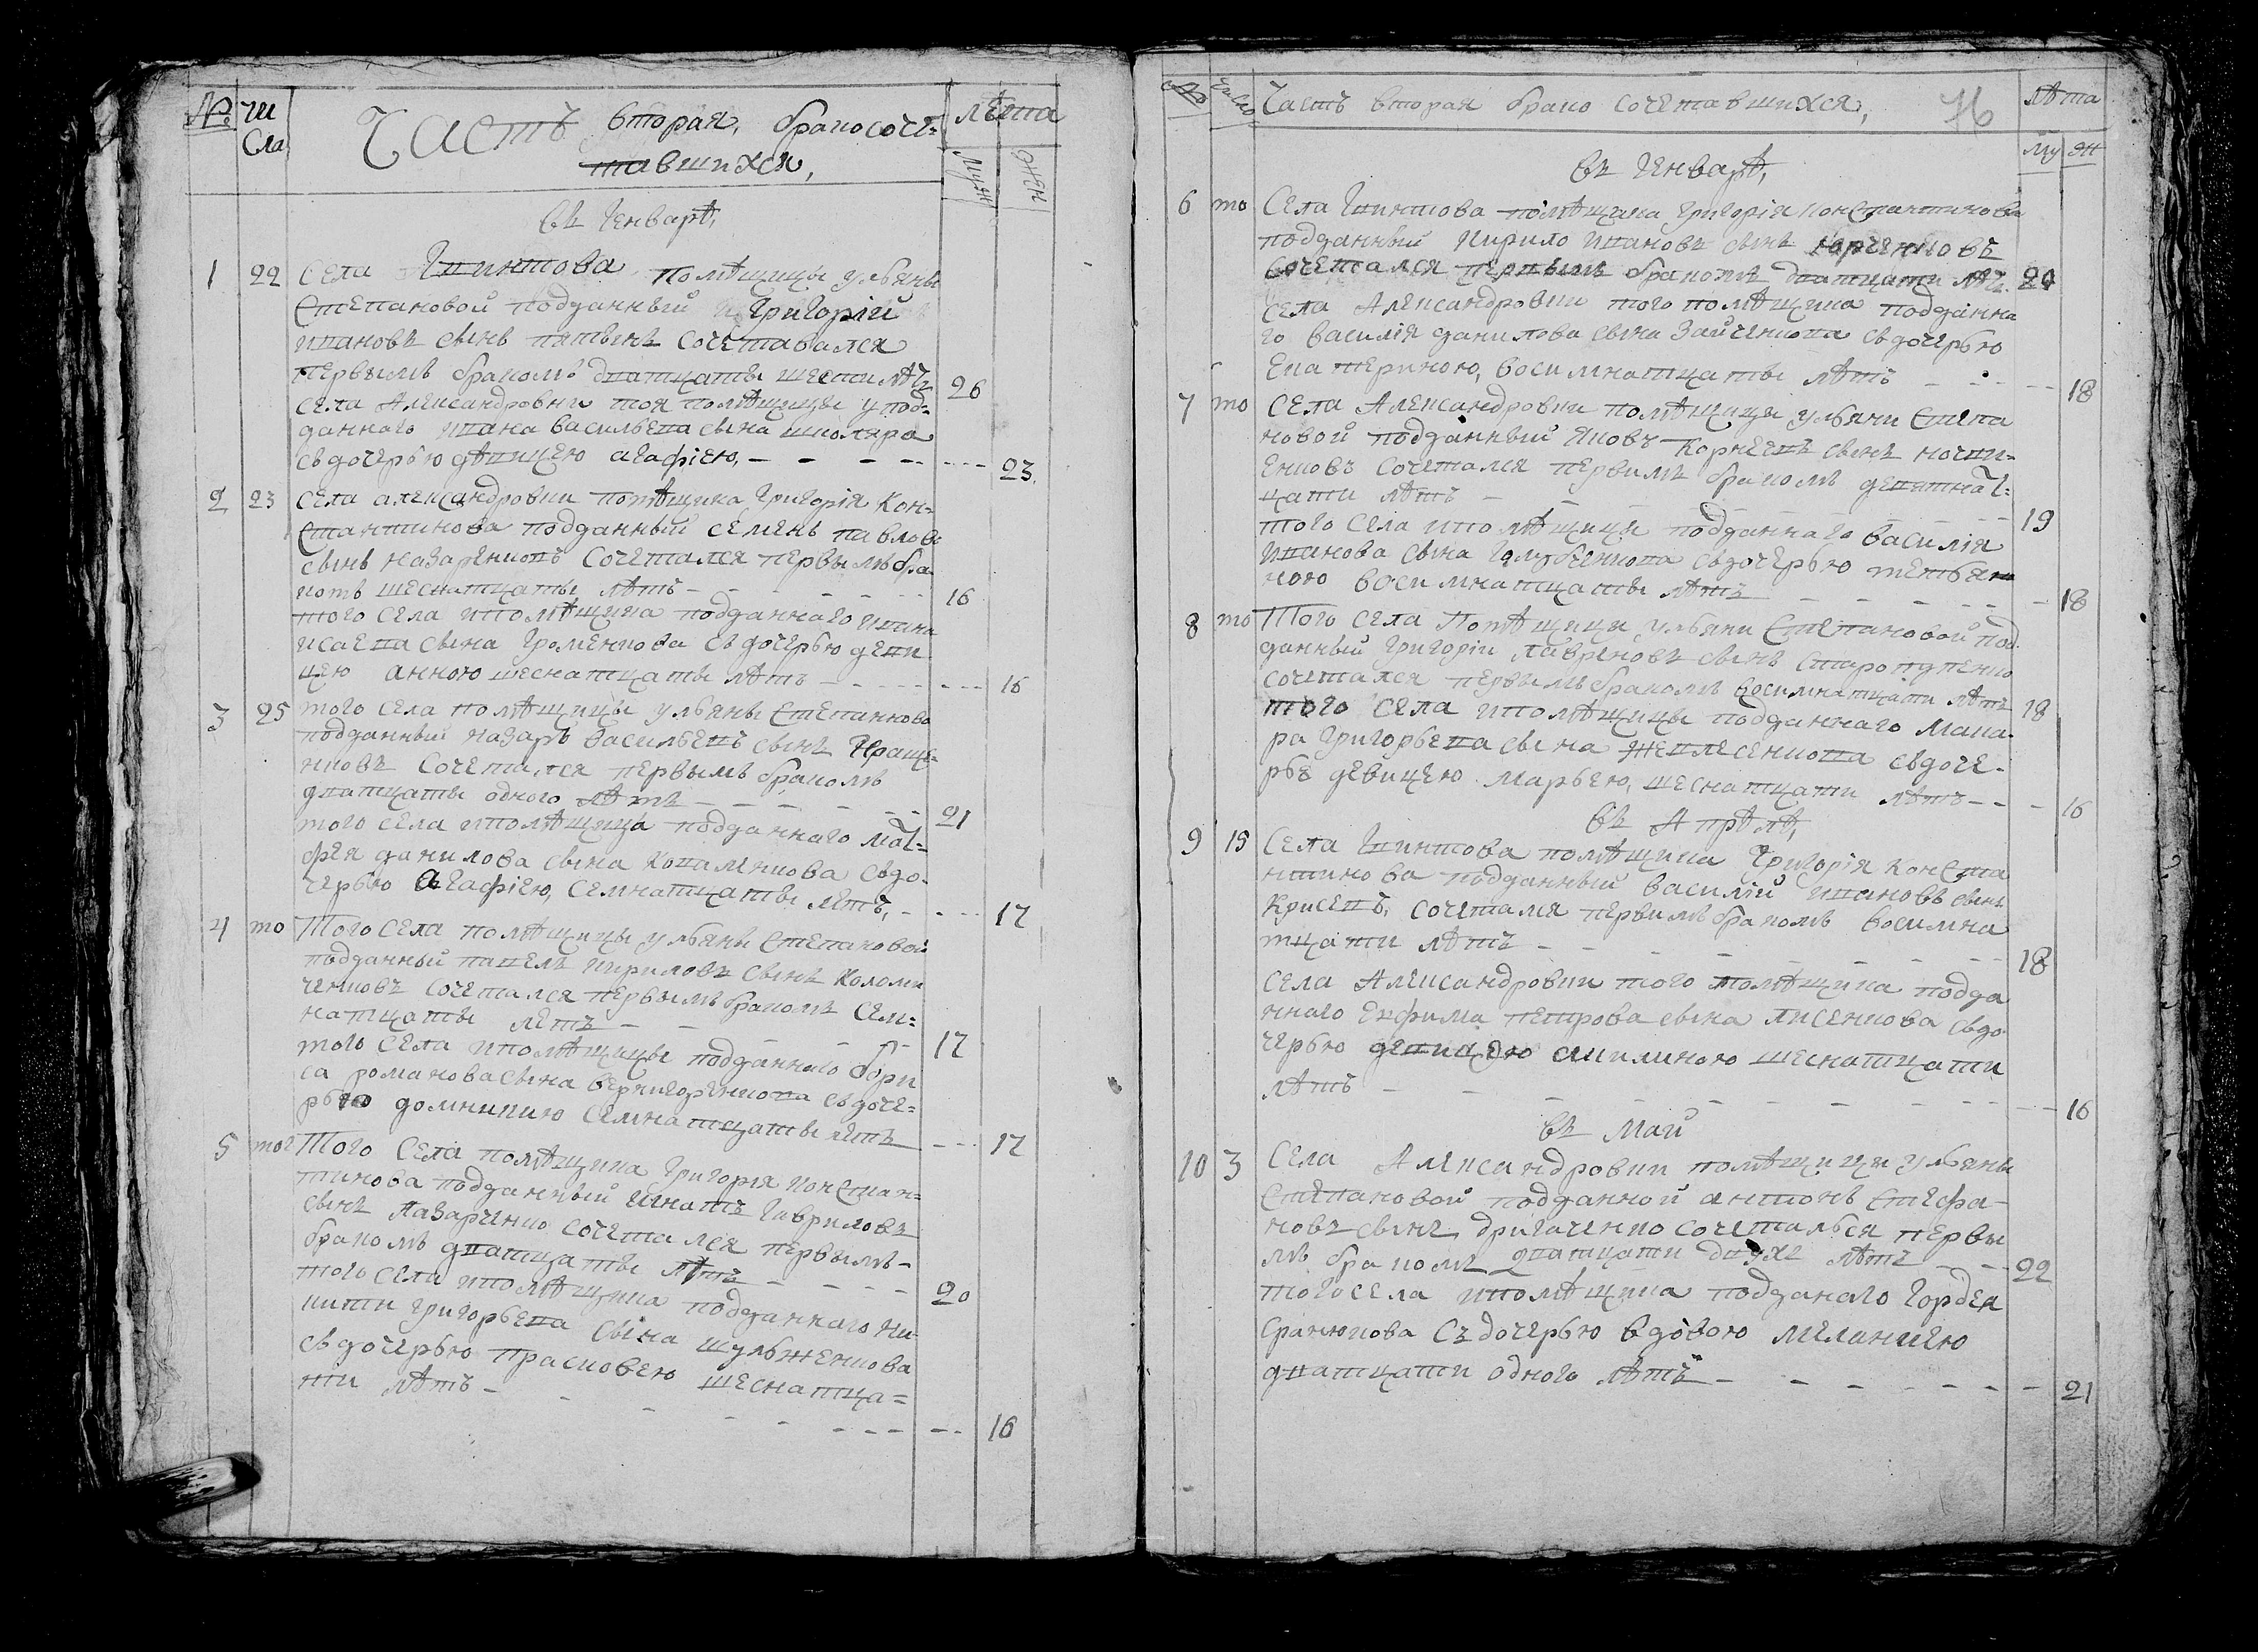 № чи
сла
Часть вторая, бракосоче=
тавшихся,
лѣта
муж
жен
въ Генварѣ,
1 22 села помѣщицы ульяны
степановой подданный Григорій
ивановъ сынъ сочетавался
первымъ бракомъ дватцаты шести лѣтъ 26
села Александровки тоя помѣщицы у под=
данного ивана васильева сына школяра
съ дочерью дѣвицею агафіею, 23
2 23 села александровки помѣщика григорія кон=
стантинова подданный семенъ павловъ
сынъ назаренковъ сочетался первымъ бра
комъ шеснатцаты лѣтъ 16
того села и помѣщика подданного ивана
исаева сына громенкова съ дочерью деви
цею анною шеснатцаты лѣтъ 16
3 25 того села помѣщицы ульяны степанновой
подданный назаръ васильевъ сынъ
нковъ сочетался первымъ бракомъ
дватцаты одного лѣтъ 21
того села и помѣщица подданного мат=
фея данилова сына коваленкова съ до=
черью агафіею, семнатцаты летъ, 17
4 то Того села помѣщицы ульяны степановой
подданный павелъ кириловъ сынъ коломи
ченковъ сочетался первымъ бракомъ сем=
натцаты летъ 17
того села и помѣщицы подданного бори
са романова сына вернигоренкова съ доче=
рью домникию семнатцаты летъ 17
5 тог Того села помѣщика григорія констан=
тинова подданный игнатъ гавриловъ
сынъ лазаренко сочетался первымъ
бракомъ дватцаты лѣтъ 20
того села и помѣщика подданного ни=
кити григорьева сына шульженкова
съ дочерью прасковею шеснатца=
ти лѣтъ 16
№ число Часть вторая брако сочетавшихся, 76 лѣта
му же
въ Генварѣ,
6 то Села помѣщика григорія константинова
подданный кирило ивановъ сынъ
сочетался первымъ бракомъ дватцати лѣтъ 20
села Александровки того помѣщика подданна
го василія данилова сына зайченкова съ дочерью
екатериною, восимнатцаты лѣтъ 18
7 то Села Александровки помѣщици ульяни степа
новой подданный яковъ корнеевъ сынъ
енковъ сочетался первимъ бракомъ деветнат=
цати лѣтъ 19
того села и помѣщици подданнаго василія
иванова сына голубенкова съ дочерью татьян
ною восимнатцаты лѣтъ 18
8 то Того села Помѣщици ульяни степановой под
данный григорій лавреновъ сынъ
сочетался первымъ бракомъ восимнатцати лѣтъ 18
того села и помѣщицы подданнаго мака
ра григорьева сына съ доче=
рье девицею марьею, шеснатцати лѣтъ 16
въ Апрѣлѣ,
9 15 Села помѣщика григорія конста
нтинова подданный василий ивановъ сынъ
крисевъ, сочетался первимъ бракомъ восимна
тцати лѣтъ 18
села Александровки того помѣщика подда
ннаго ефима петрова сына лисенкова съ до
черью девицею акилиною шеснатцати
лѣтъ 16
въ май
10 3 Села Александровки помѣщици ульяны
степановой подданной антонъ стефа=
новъ сынъ дригаченко сочетался первы
мъ бракомъ дватцати двухъ лѣтъ 22
того села и помѣщика подданаго гордея
съ дочерью вдовою меланиею
дватцати одного лѣтъ 21